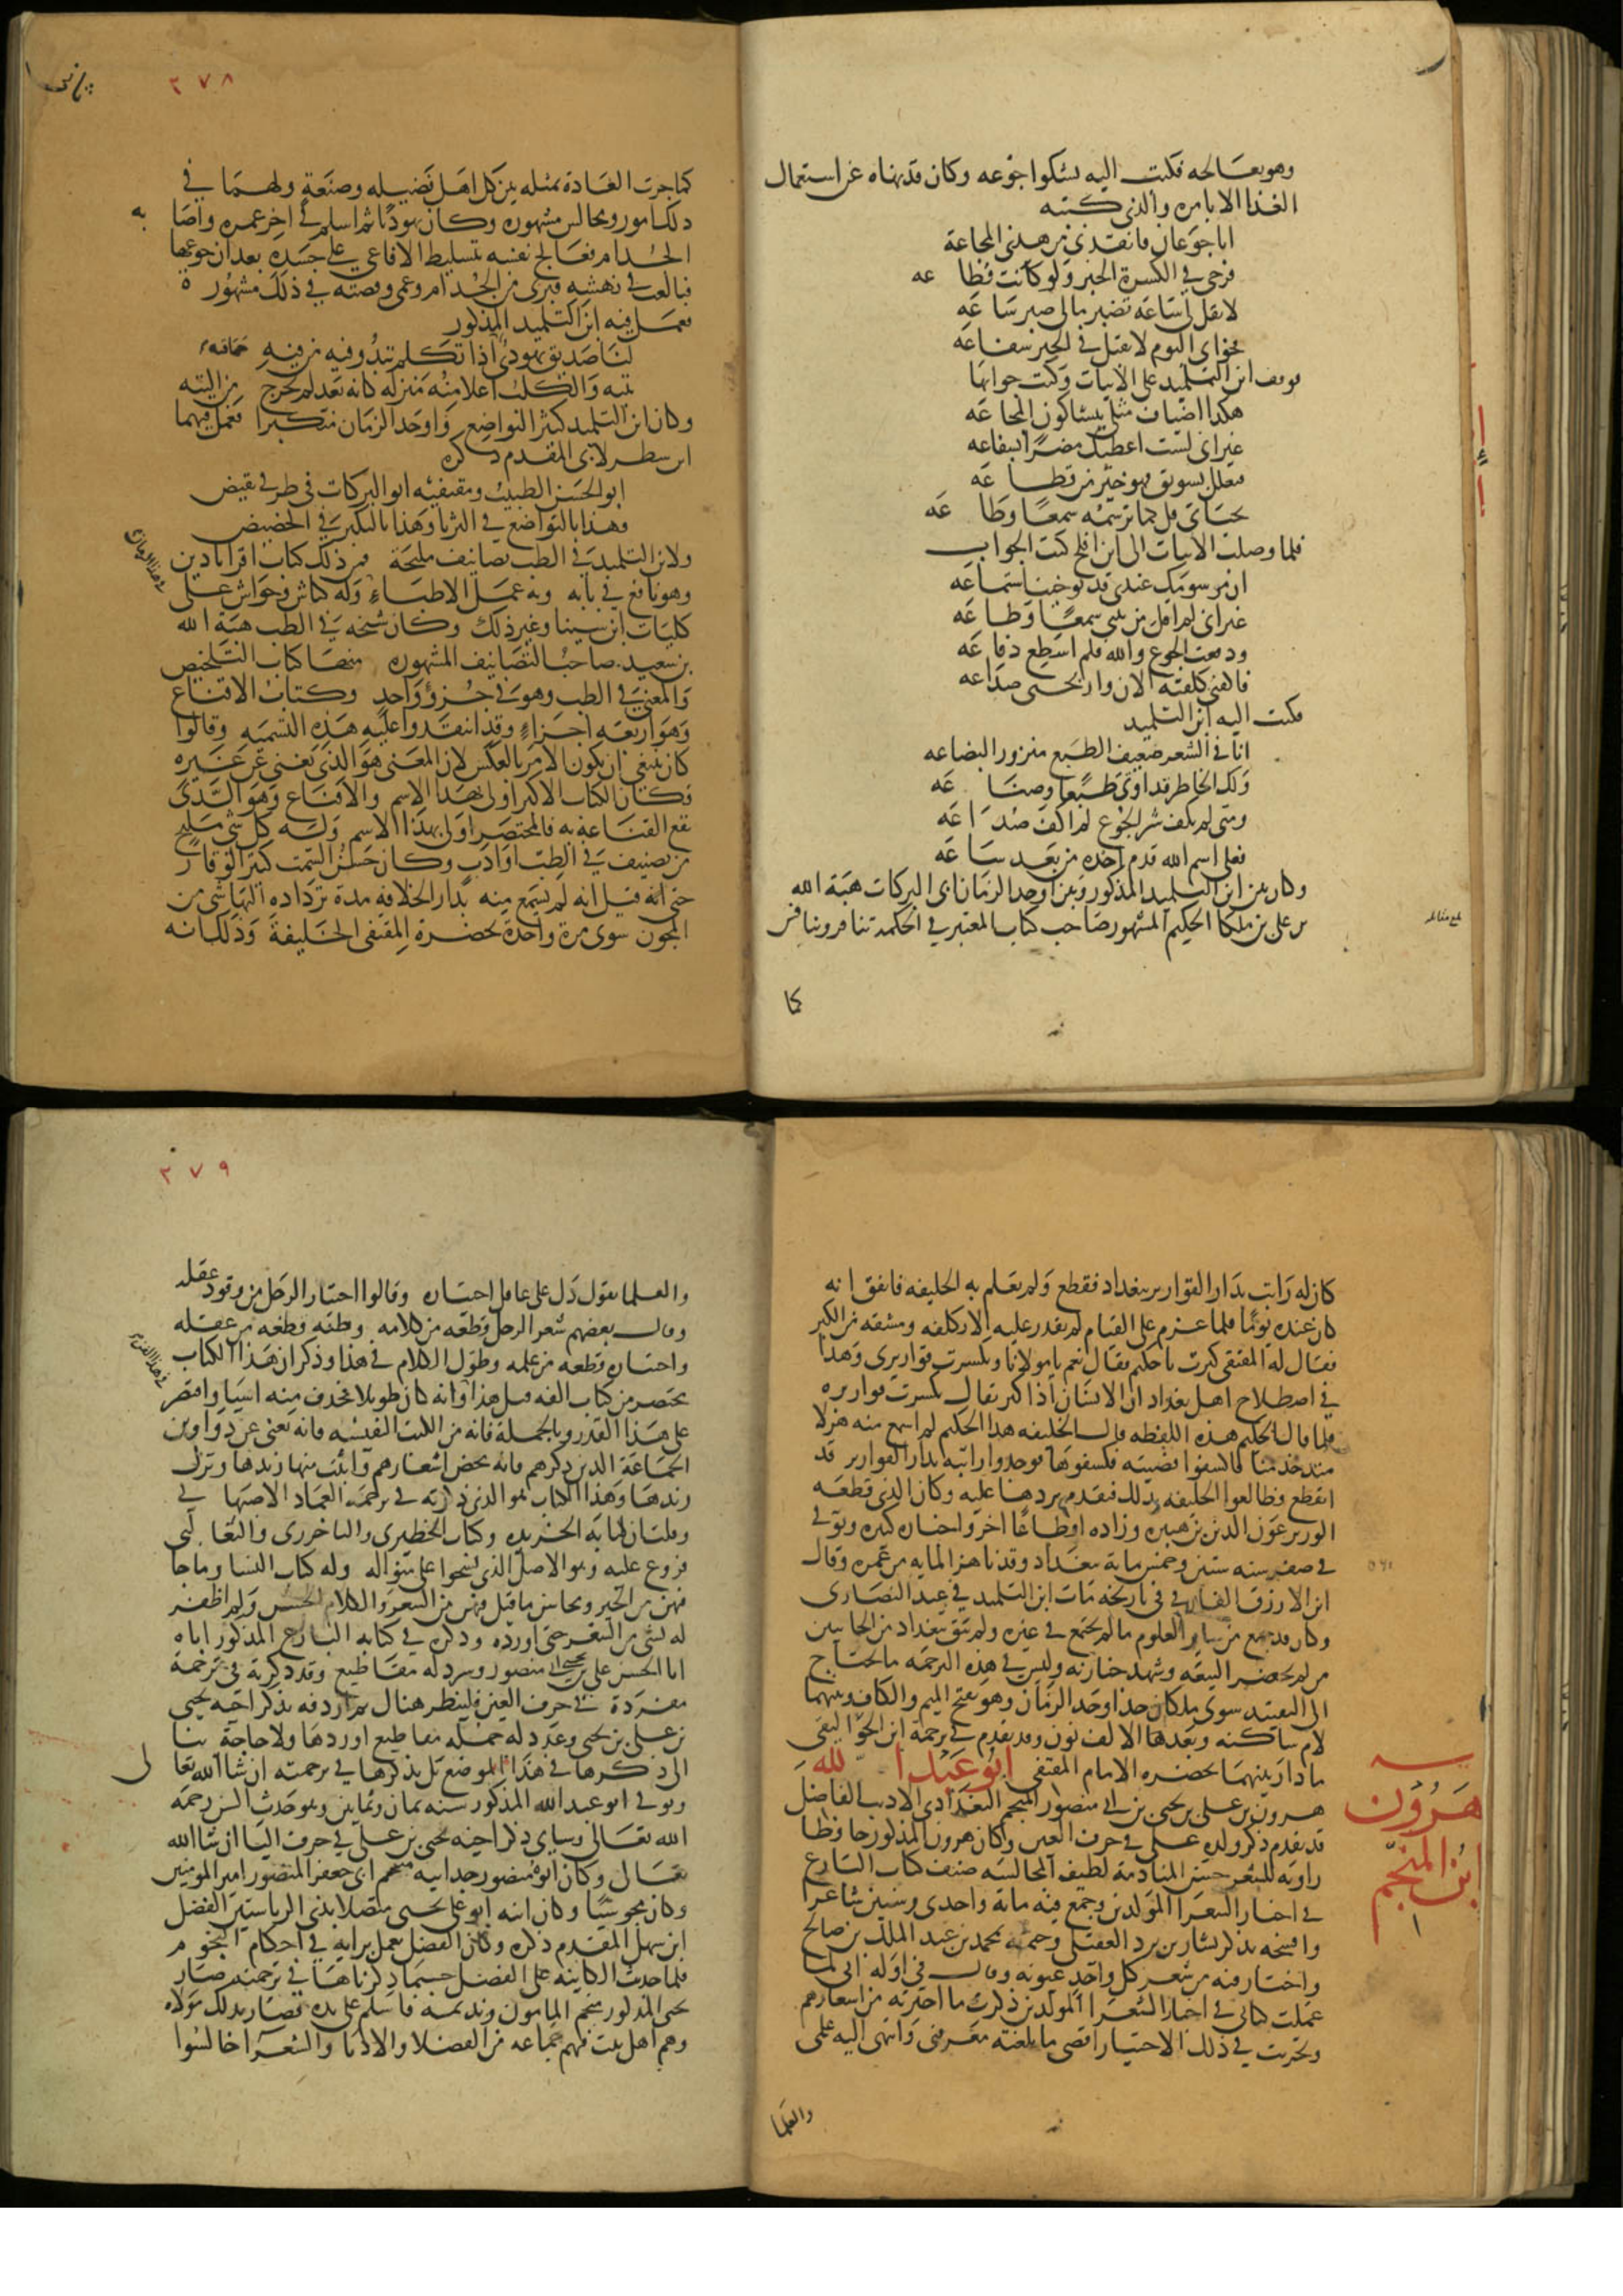 وهو يعالجه فكتب اليه يشكوا جوعه وكان قد نهاه عن استعمال
الغذا الا بامره والذى كتبه
انا جوعان فانقذنى من هذى المجاعة
فرجى في الكسرة الخبز ولو كانت قطا عه
لا تقل لى ساعة تصبر مالى صبر ساعه
فخواى اليوم لا يقبل في الخبز شفاعه
فوقف ابن التلميد على الابيات وكتب جوابها
هكذا اضياف مثلى يشاكون المجاعه
غير انى لست اعطيك مضرا بشفاعه
فتعلل بسويق فهو خير من قطا عه
بحياتى قل كما ترسمه سمعا وطا عه
فلما وصلت الابيات الى ابن افلح كتب الجواب
ان مرسومك عندى قد توخيت استماعه
غير انى لم اقل من نيتى سمعا وطاعه
ودفعت الجوع والله فلم اسطع دفاعه
فاكفنى كلفته الان وارحنى صداعه
فكتب اليه ابن التلميد
انا في الشعر ضعيف الطبع منزور البضاعه
ولك الخاطر قد اوتى طبعا وصنا عه
ومتى لم يكف شر الجوع لم اكف صدا عه
فعلى اسم الله قدم اخذه من بعد سا عه
وكان بين ابن التلميد المذكور وبين اوحد الزمان ابى البركات هبة الله
بن على بن ملكا الحكيم المشهور صاحب كتاب المعتبر في الحكمة تنافر وتنافس
كما
٢٧٨
كما جرت العادة بمثله بين كل اهل فضيله وصنعة ولهما في
ذلك امور ومجالس مشهوره وكان يهوديا ثم اسلم في اخر عمره واصا به
الجذام فعالج نفسه بتسليط الافاعي على جسده بعد ان جوعها
فبالغت في نهشه فبرى من الجذام وعمى وقصته في ذلك مشهوره
فعمل فيه ابن التلميد المذكور
لنا صديق يهودى اذا تكلم تبدو فيه من فيه حماقه
يتيه والكلب اعلا منه منزله كانه بعد لم يخرج من التيه
وكان ابن التلميد كثير التواضع واوحد الزمان متكبرا فعمل فيهما
البديع الاسطرلابى المقدم ذكره
ابو الحسن الطبيب ومقتفيه ابو البركات في طرفي نقيض
فهذا بالتواضع في الثريا وهذا بالتكبر في الحضيض
ولابن التلميد في الطب تصانيف مليحة فمن ذلك كتاب اقراباذين
وهو نافع في بابه وبه عمل الاطباء وله كناش وحواش على
كليات ابن سينا وغير ذلك وكان شيخه في الطب هبة الله
بن سعيد صاحب التصانيف المشهوره منها كتاب التلخيص
والمغنى في الطب وهو في جزؤ واحد وكتاب الاقناع
وهو اربعه اجزاء وقد انتقدوا عليه هذه التسميه وقالوا
كان ينبغى ان يكون الامر بالعكس لان المغنى هو الذى يغنى عن غيره
فكان الكتاب الاكبر اولى بهذا الاسم والاقناع وهو الذى
تقع القناعة به فالمختصر اولى بهذا الاسم وله كل شى مليح
من تصنيف في الطب وادب وكان حسن السمت كثير الوقار
حتى انه قيل انه لم يسمع منه بدار الخلافه مدة ترداده اليها شى من
المجون سوى مرة واحدة بحضرة المقتفى الخليفة وذلك انه
كان له راتب بدار القوارير ببغداد فقطع ولم يعلم به الخليفه فاتفق انه
كان عنده يوما فلما عزم على القيام لم يقدر عليه الا بكلفه ومشقه من الكبر
فقال له المقتفى كبرت يا حكيم فقال نعم يا مولانا وتكسرت قواريرى وهذا
في اصطلاح اهل بغداد ان الانسان اذا كبر يقال تكسرت قواريره
فلما قال الحكيم هذه اللفظه قال الخليفه هذا الحكيم لم اسمع منه هزلا
منذ خدمنا فاكشفوا قضيته فكشفوها فوجدوا راتبه بدار القوارير قد
انقطع وطالعوا الخليفه بذلك فتقدم بردها عليه وكان الذى قطعه
الوزير عون الدين بن هبيره وزاده اقطاعا اخر واحسان كثيره وتوفي
في صفر سنه ستين وخمس ماية ببغداد وقد ناهز المايه من عمره وقال
ابن الازرق الفارقي في تاريخه مات ابن التلميد في عيد النصارى
وكان قد جمع من ساير العلوم ما لم يجتمع في غيره ولم يبق ببغداد من الجانبين
من لم يحضر البيعه وشهد جنازته وليس في هذه الترجمه ما يحتاج
الى التقييد سوى ملكان جد اوحد الزمان وهو بفتح الميم والكاف وبينهما
لام ساكنه وبعدها الالف نون وقد تقدم في ترجمة ابن الجواليقى
ما دار بينهما بحضره الامام المقتفى ابو عبد الله
هرون بن على بن يحيى بن ابى منصور المنجم البغدادى الاديب الفاضل
قد تقدم ذكر ولده على في حرف العين وكان هرون المذكور حافظا
راويه للشعر حسن المنادمة لطيف المجالسه صنف كتاب البارع
في اخبار الشعرا المولدين وجمع فيه مائة واحدى وستين شاعرا
وافتتحه بذكر بشار بن برد العقيلى وختمه بمحمد بن عبد الملك بن صالح
واختار فيه من شعر كل واحد عيونه وقال في اوله انى لما
عملت كتابى في اخبار الشعرا المولدين ذكرت ما اخترته من اشعارهم
وتحريت في ذلك الاختيار اقصى ما بلغته معرفتى وانتهى اليه علمى
والعلما
هرون
ابن المنجم
٢٧٩
والعلما تقول دل على عاقل اختياره وقالوا اختيار الرجل من وفود عقله
وقال بعضهم شعر الرجل قطعه من كلامه وظنه قطعه من عقله
واختياره قطعه من علمه وطول الكلام في هذا وذكر ان هذا الكتاب
مختصر من كتاب الفه قبل هذا وانه كان طويلا فحذف منه اشيا واقتصر
على هذا القدر وبالجملة فانه من الكتب النفيسه فانه يغنى عن دواوين
الجماعة الذين ذكرهم فانه محض اشعارهم واثبت منها زبدها وترك
زبدها وهذا الكتاب هو الذى ذكرته في ترجمة العماد الاصبها نى
وقلت ان كتابه الخريده وكتاب الحظيرى والباخرزى والثعالبى
فروع عليه وهو الاصل الذى نسجوا على منواله وله كتاب النسا وما جا
فيهن من الخبر ومحاسن ما قيل فيهن من الشعر والكلام الحسن ولم اظفر
له بشى من الشعر حتى اورده وذكر في كتابه البارع المذكور اباه
ابا الحسن على بن يحيى بن ابى منصور وسرد له مقاطيع وقد ذكرته في ترجمة
مفردة في حرف العين فلينظر هناك ثم اردفه بذكر اخيه يحيى
بن على بن يحيى وعدد له جملة مقاطيع اوردها ولا حاجة بنا
الى ذكرها في هذا الموضع بل نذكرها في ترجمته ان شا الله تعا لى
وتوفى ابو عبد الله المذكور سنه ثمان وثمانين وهو حدث السن رحمه
الله تعالى وسياتى ذكر اخيه يحيى بن على في حرف اليا ان شا الله
تعالى وكان ابو منصور جد ابيه منجم ابى جعفر المنصور امير المومنين
وكان مجوسيا وكان ابنه ابو على يحيى متصلا بذى الرياستين الفضل
ابن سهل المقدم ذكره وكان الفضل يعمل برايه في احكام النجوم
فلما حدثت الكاينه على الفضل حسبما ذكرناها في ترجمته صار
يحيى المذكور منجم المامون ونديمه فاسلم على يده فصار بذلك مولاه
وهم اهل بيت فيهم جماعه من الفضلا والادبا والشعرا جالسوا